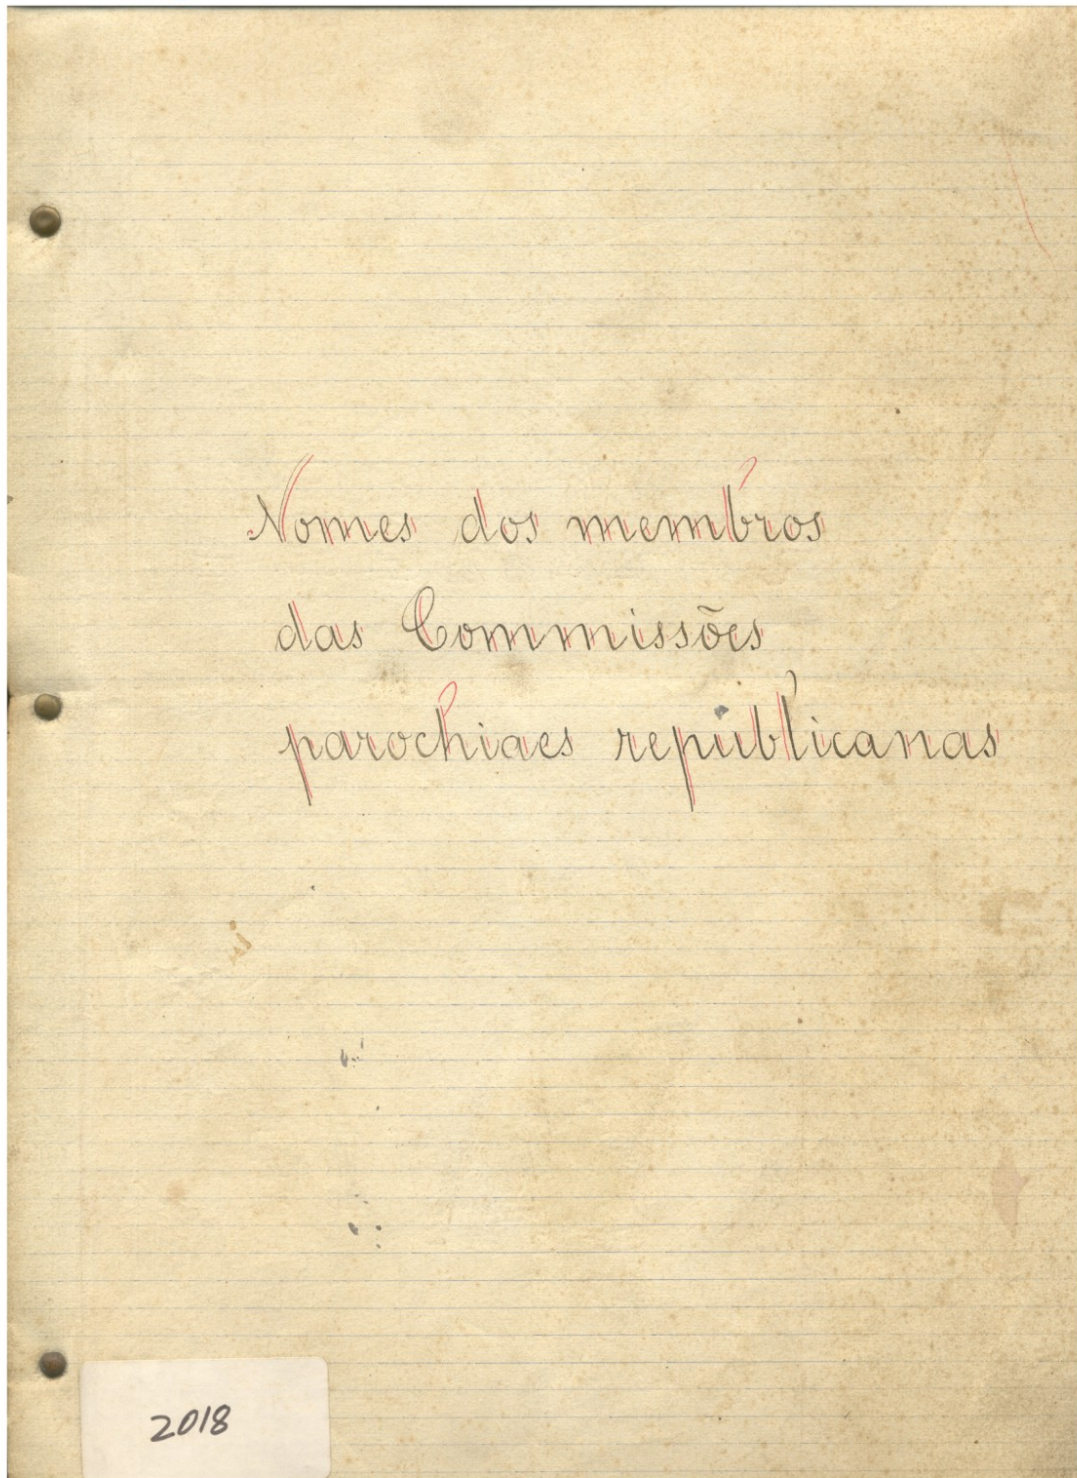 Nomes dos membros
das Commissões
parochiaes republicanas
2018